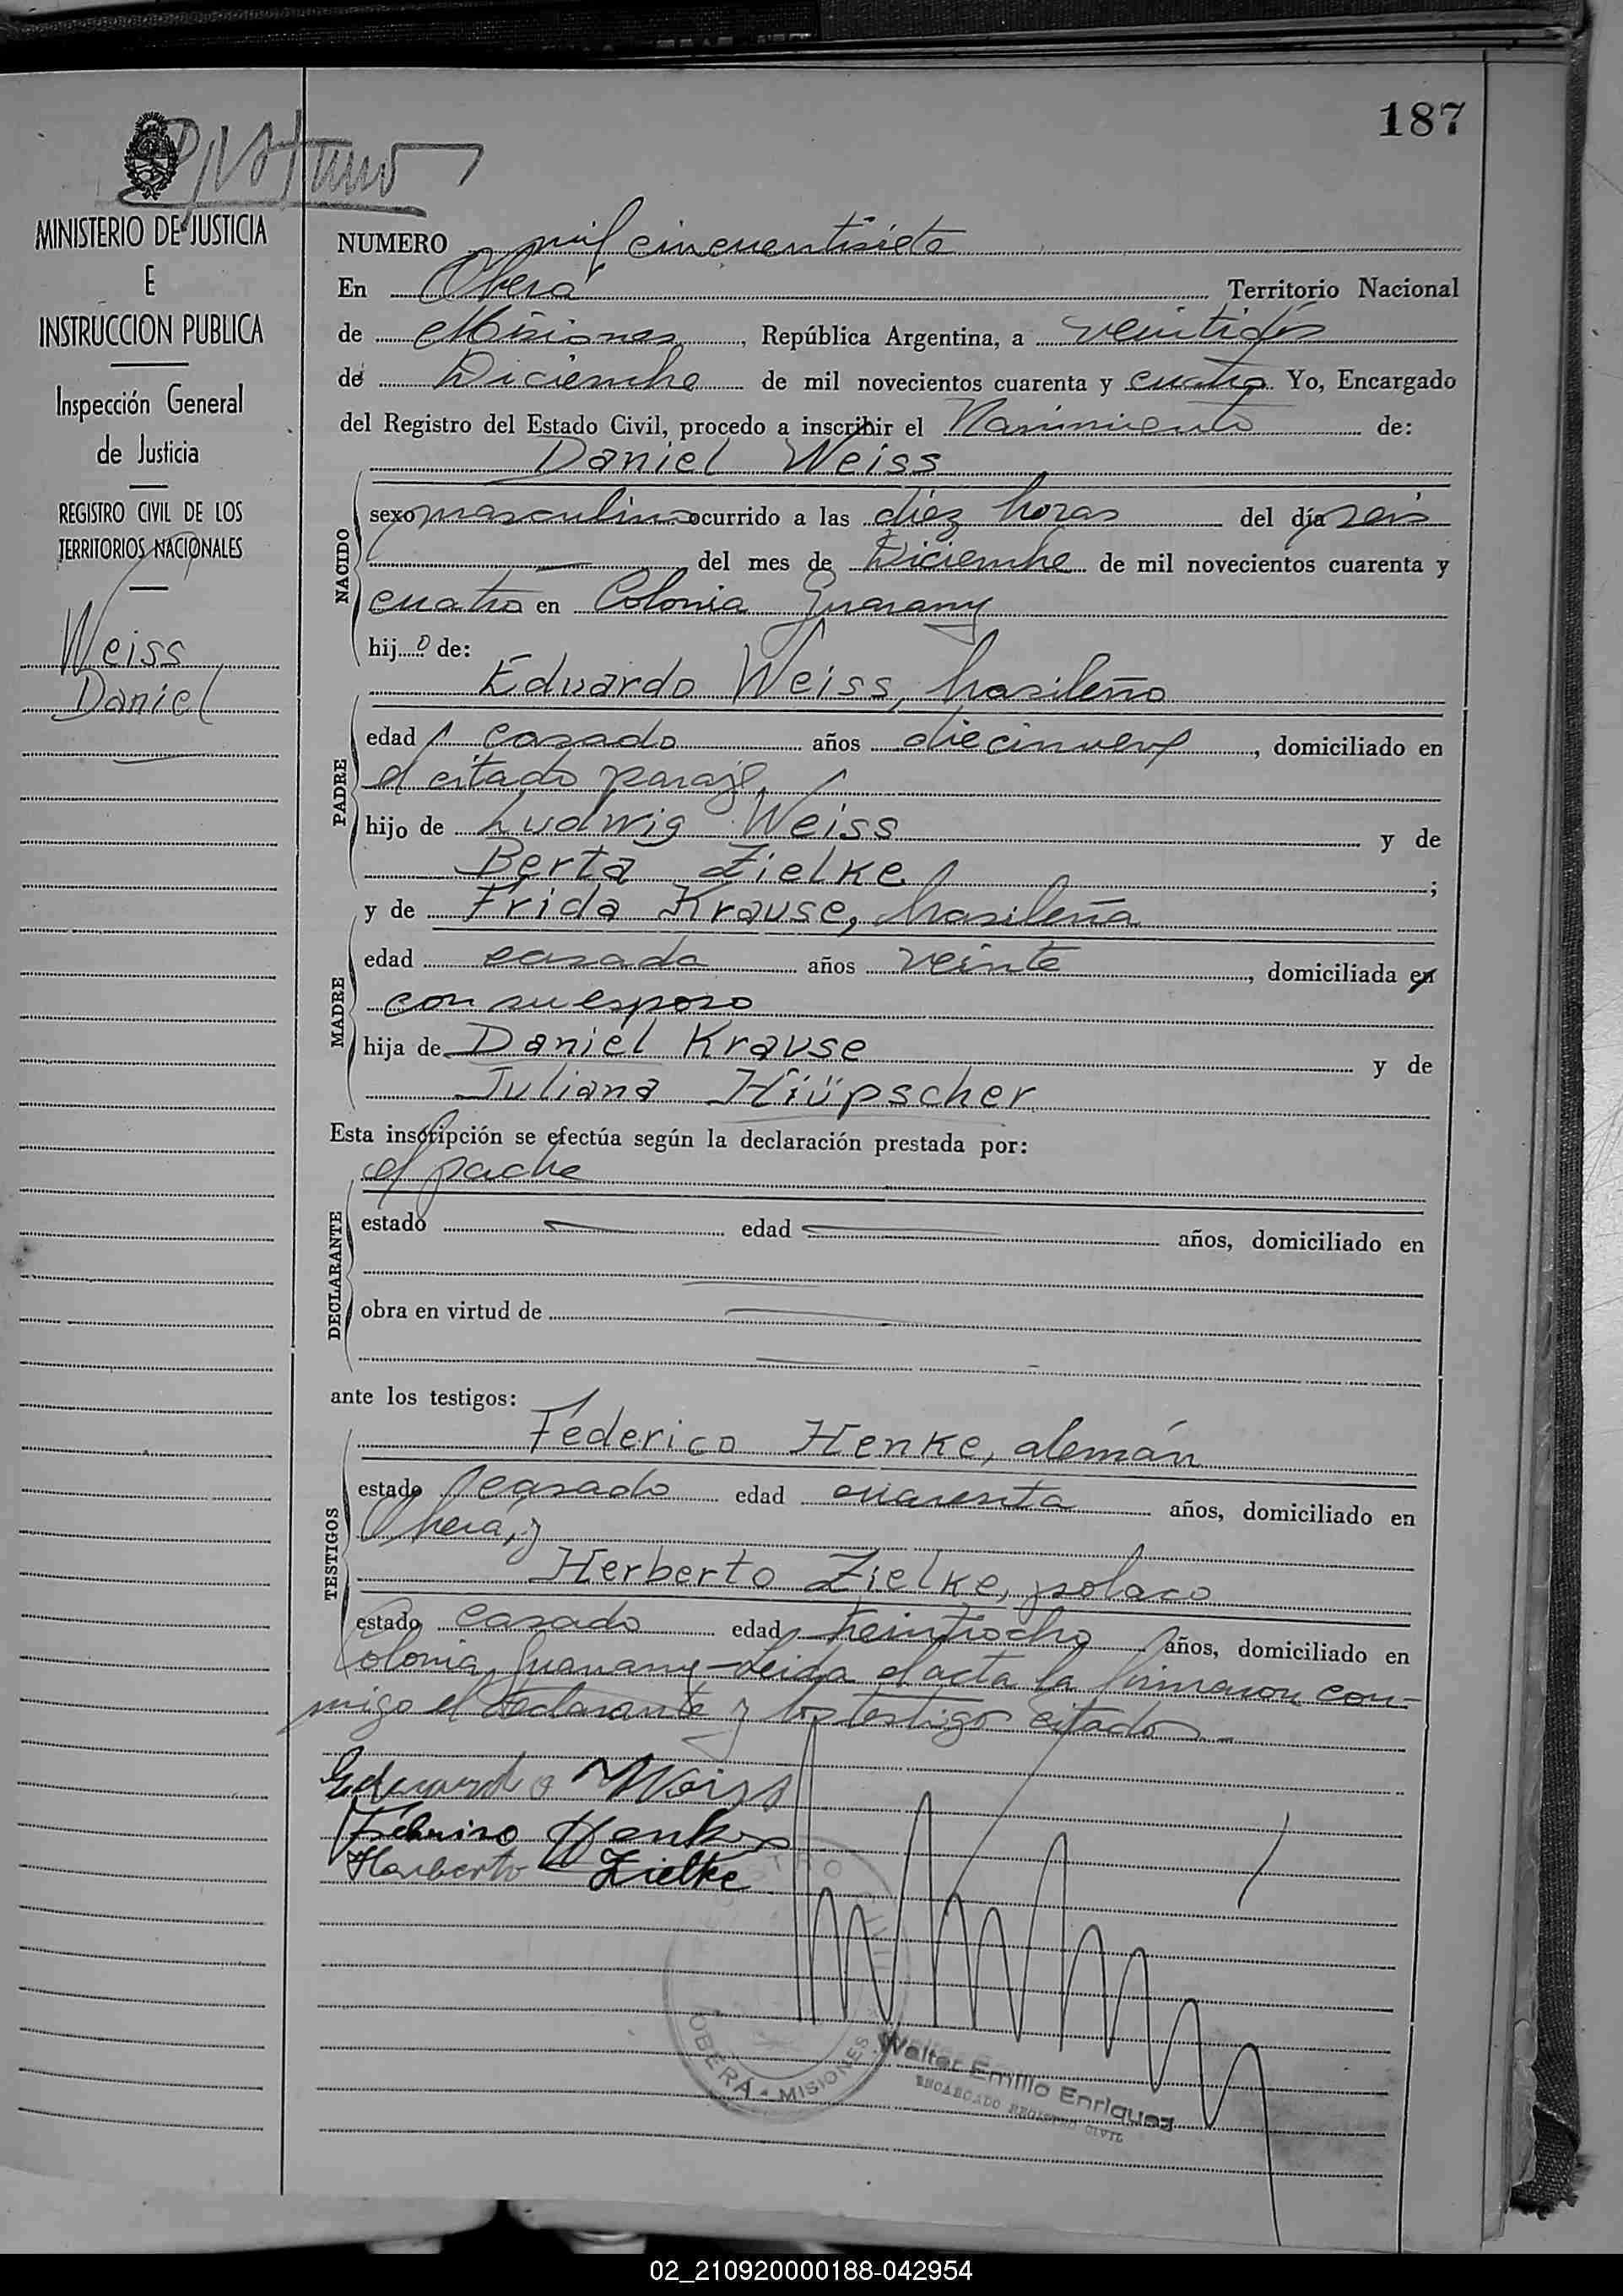 187
MINISTERIO DE JUSTICIA
E
INSTRUCCION PUBLICA
Inspección General
de Justicia
REGISTRO CIVIL DE LOS
TERRITORIOS NACIONALES
Weiss
Daniel
NUMERO mil cincuentisiete
En Oberá Territorio Nacional
de Misiones, República Argentina, a veintidós
de Diciembre de mil novecientos cuarenta y cuatro Yo, Encargado
del Registro del Estado Civil, procedo a inscribir el Nacimiento de:
Daniel Weiss
NACIDO
sexo masculino ocurrido a las diez horas del día seis
del mes de Diciembre de mil novecientos cuarenta y
cuatro en Colonia Guarany
hijo de:
PADRE
Eduardo Weiss, brasileño
edad casado años diecinueve, domiciliado en
el citado paraje,
hijo de Ludwig Weiss y de
Berta Zielke;
MADRE
y de Frida Krause, brasileña
edad casada años veinte, domiciliada en
con su esposo
hija de Daniel Krause y de
Juliana Hiüpscher
Esta inscripción se efectúa según la declaración prestada por:
DECLARANTE
el padre
estado edad años, domiciliado en
obra en virtud de
ante los testigos:
TESTIGOS
Federico Henke, alemán
estado casado edad cuarenta años, domiciliado en
Oberá, y
Herberto Zielke, polaco
estado casado edad treintiocho años, domiciliado en
Colonia Guarany - Leida el acta la firmaron con-
migo el declarante y los testigos citados.
Eduardo Weiss
Henke
Herberto Zielke
OBERÁ - MISIONES
Walter Emilio Enriquez
ENCARGADO REGISTRO CIVIL
02_210920000188-042954